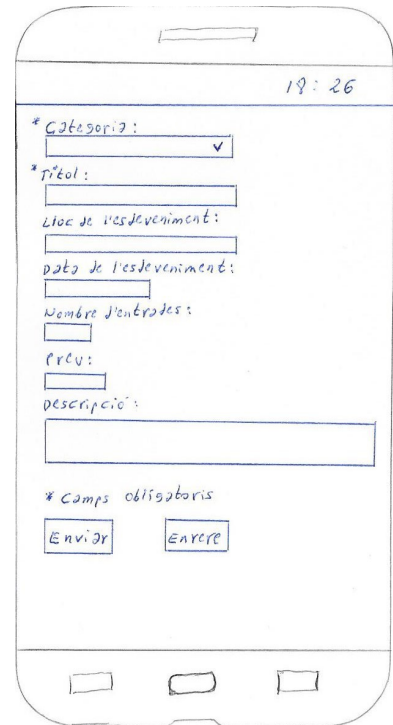 18:26
* Categoria:
* Títol:
Lloc de l'esdeveniment:
Data de l'esdeveniment:
Nombre d'entrades:
Preu:
Descripció:
* Camps obligatoris
Enviar Enrere